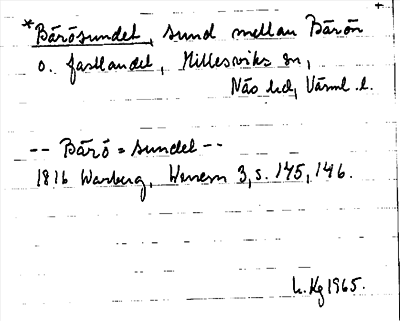 *Bärösundet, sund mellan Bärön
o. fastlandet, Millesviks sn,
Näs hd, Värml. l.
-- Bärö = sundet --
1816 Warberg, Wenern 3, s. 145, 146.
L. Kg 1965.